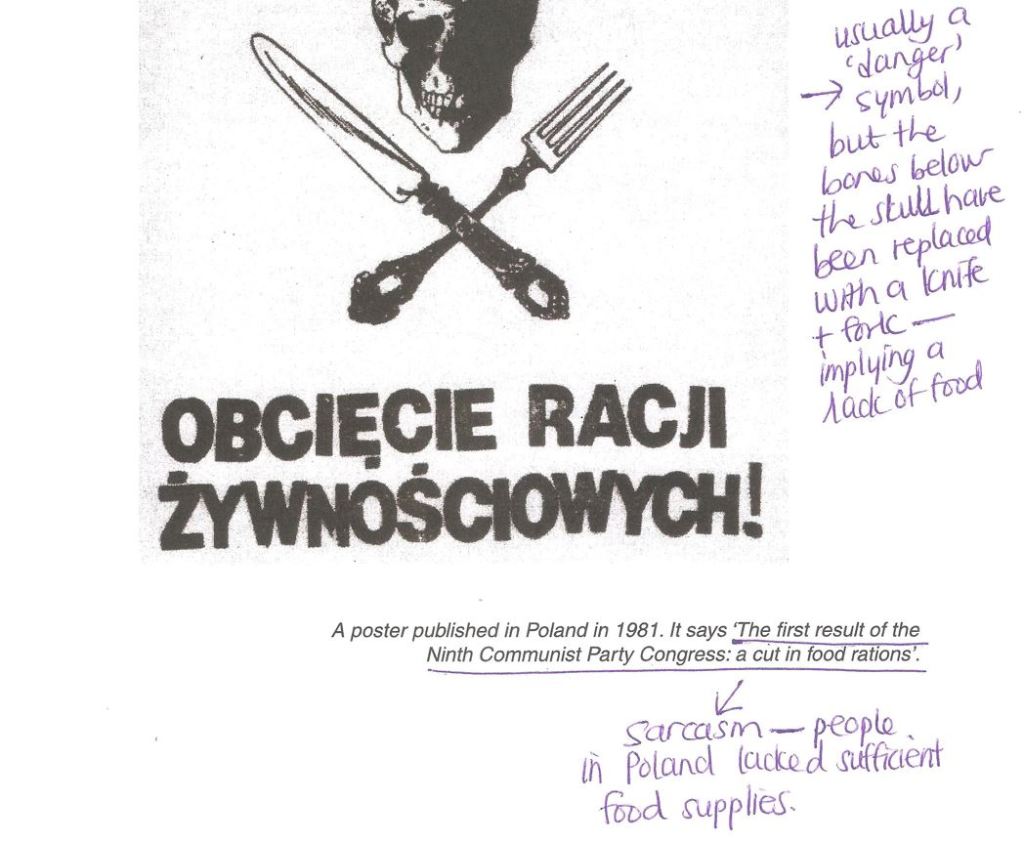 usually a
'danger'
→ symbol,
but the
bones below
the skull have
been replaced
with a knife
+ fork —
implying a
lack of food
OBCIĘCIE RACJI
ŻYWNOŚCIOWYCH!
A poster published in Poland in 1981. It says 'The first result of the
Ninth Communist Party Congress: a cut in food rations'.
sarcasm — people
in Poland lacked sufficient
food supplies.